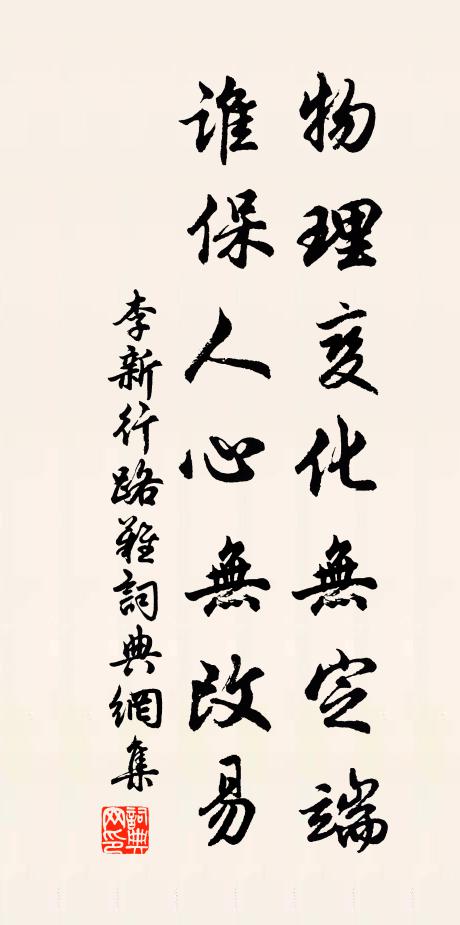 物理变化無定端
誰保人心無改易
李新行路難詞典網集
詞典網印